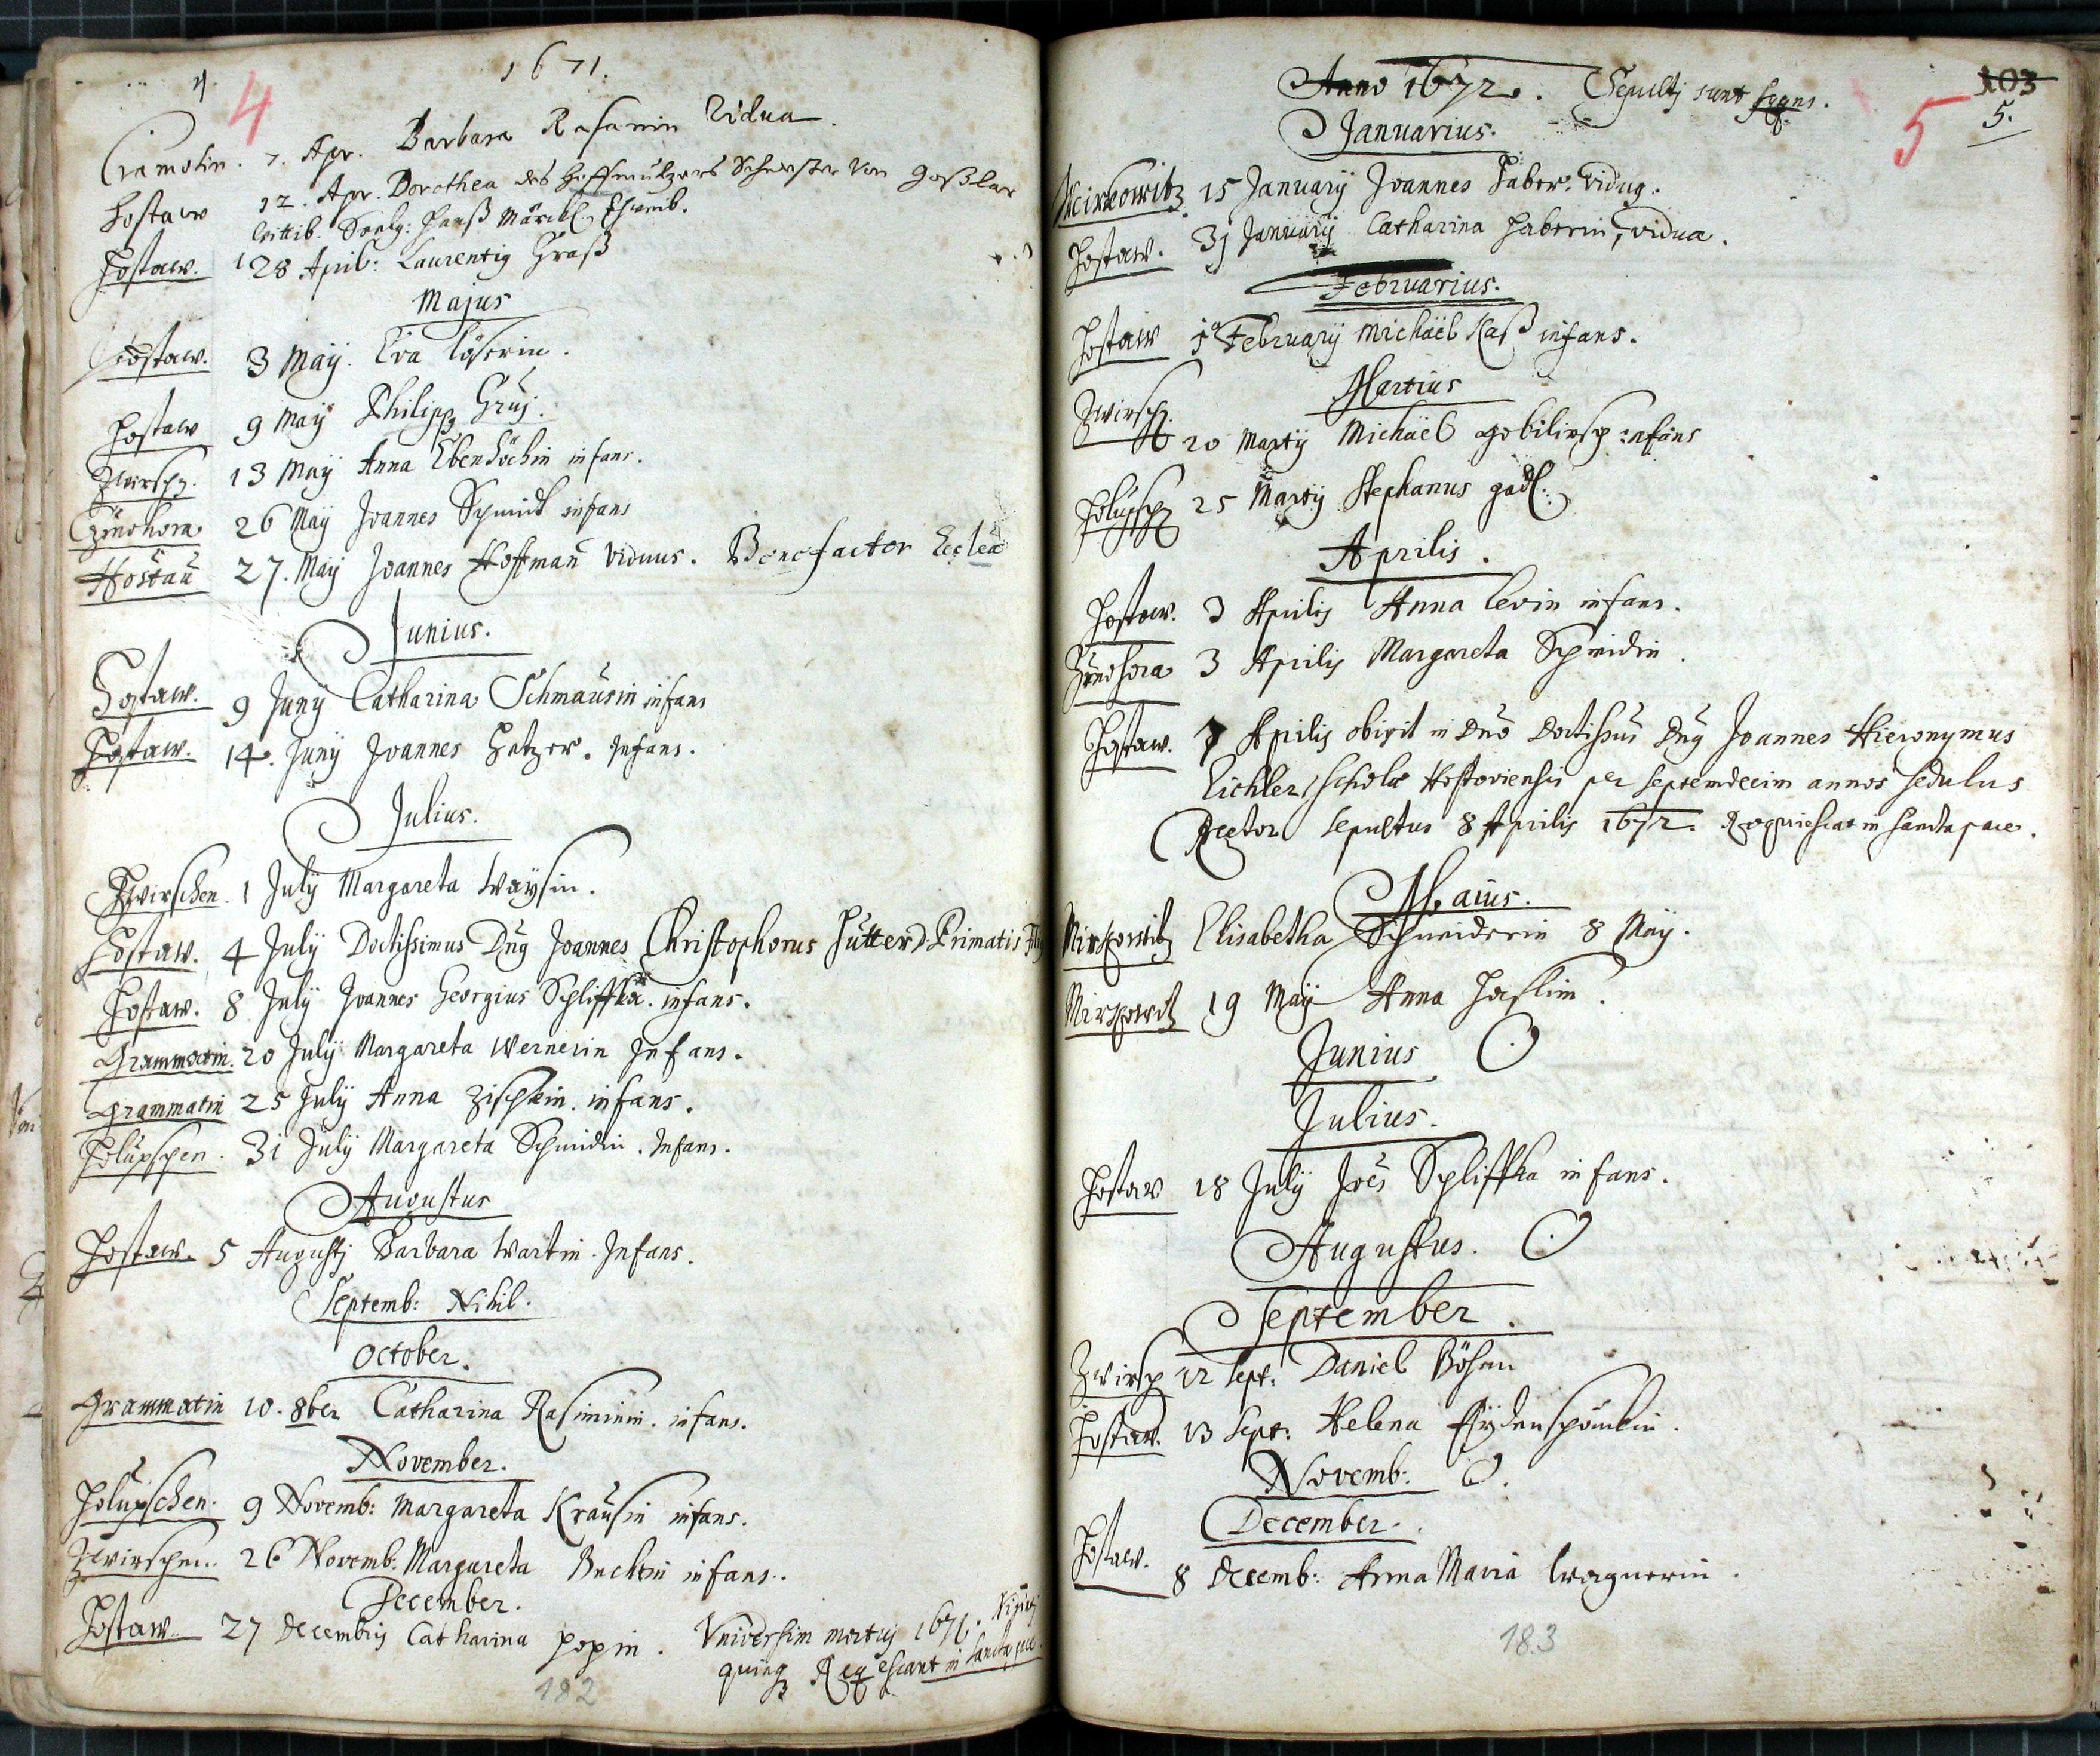 4.
4
1671.
Cramotin. 7. Apr. Barbara Rasamin Vidua.
Hostaw 12. Apr. Dorothea des Hoffmultzers Schwester von Goßlar
Wittib. Seelig: Hanß Märckl Schreib.
Hostaw. 28 April: Laurentig Graß
Majus
Hostaw. 3 Maÿ. Eva Löserin.
Hostaw 9 Maÿ Philipp
Zwirschz. 13 Maÿ Anna Ebenhöchin infans.
26 Maÿ Joannes Schmidt infans
Hostaü 27. Maÿ Joannes Hoffman viduus. Benefactor Eccleã
Junius.
Hostaw. 9 Junÿ Catharina Schmausin infans
Hostaw. 14. Junÿ Joannes Hatzer. Infans.
Julius.
Zwirschen. 1 Julÿ Margareta Waÿsin.
Hostaw. 4 Julÿ Doctissimus Dng Joannes Christophorus Hutter D. Primatis
Hostaw. 8 Julÿ Joannes Georgius Schliffka. infans.
Grammatin. 20 Julÿ Margareta Wernerin Infans.
Grammatin 25 Julÿ Anna Zischkin. infans.
Holupschen. 31 Julÿ Margareta Schmidin. Infans.
Augustus
Hostaw. 5 Augustj Barbara Wartin. Infans.
Septemb: Nihil.
October.
Grammatin 10. 8ber Catharina Rasiminin. infans.
November.
Holupschen. 9 Novemb: Margareta Krausin infans.
Zwirschen. 26 Novemb: Margareta infans.
December.
Hostaw. 27 Decembris Catharina Popin. Universim mortuj 1671. Viginti
quinq Requiescant in sancta pace.
182
103
5
5.
Anno 1672. Sepultj sunt seqns.
Januarius.
Mirkowitz 15 Januarÿ Joannes Faber. Vidug.
Hostaw. 31 Januarÿ Catharina Haberin, vidua.
Februarius.
Hostaw Februarÿ Michäel Kaß infans.
Martius
Zwirsch 20 Martÿ Michäel infans
Holupsch 25 Martÿ Stephanus
Aprilis.
Hostaw. 3 Aprilis Anna Levin infans.
3 Aprilis Margareta Schmidin.
Hostaw. 7 Aprilis obijt in Dno Doctissus Dng Joannes Hieronymus
Eichler, scholæ Hostoviensis per septemdecim annos sedulus
Rector sepultus 8 Aprilis 1672. Requiescat in sancta pace.
Maius.
Mirkowitz Elisabetha Schneiderin 8 Maÿ.
Mirkowitz 19 Maÿ Anna Haslin.
Junius O
Julius.
Hostaw 18 Julÿ Joës Schliffka infans.
Augustus. O
September.
Zwirsch 12 Sept: Daniel Böhm
Hostaw. 13 Sept: Helena
Novemb: O.
December.
Hostaw. 8 Decemb: Anna Maria Wagnerin.
183